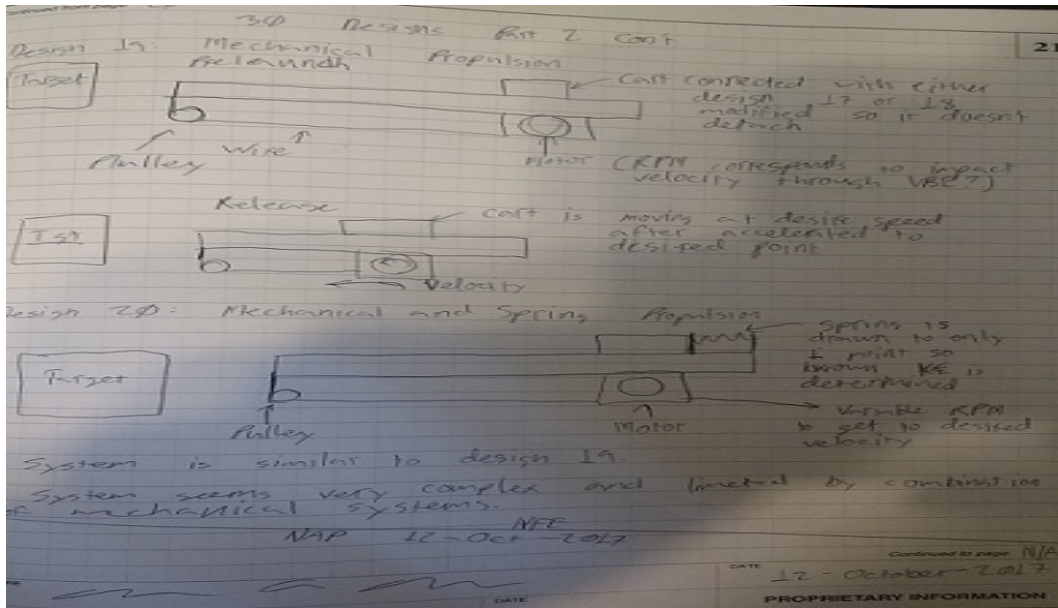 Continued from page
3φ Designs Part 2 Con't
21
Design 19: Mechanical Propulsion
Prelaunch
Target
Cart connected with either
design 17 or 18
modified so it doesn't
detach
Pulley
Wire
Motor (RPM corresponds to impact
velocity through
Release
Cart is moving at desire speed
after accelerated to
desired point
Velocity
Design 2φ: Mechanical and Spring Propulsion
Spring is
drawn to only
1 point so
known KE is
determined
Target
Pulley
Motor
Variable RPM
to set to desired
velocity
System is similar to design 19.
System seems very complex and limeted by combination
of mechanical systems.
NFE
NAP 12-Oct-2017
Continued to page N/A
DATE
12-October-2017
DATE
PROPRIETARY INFORMATION